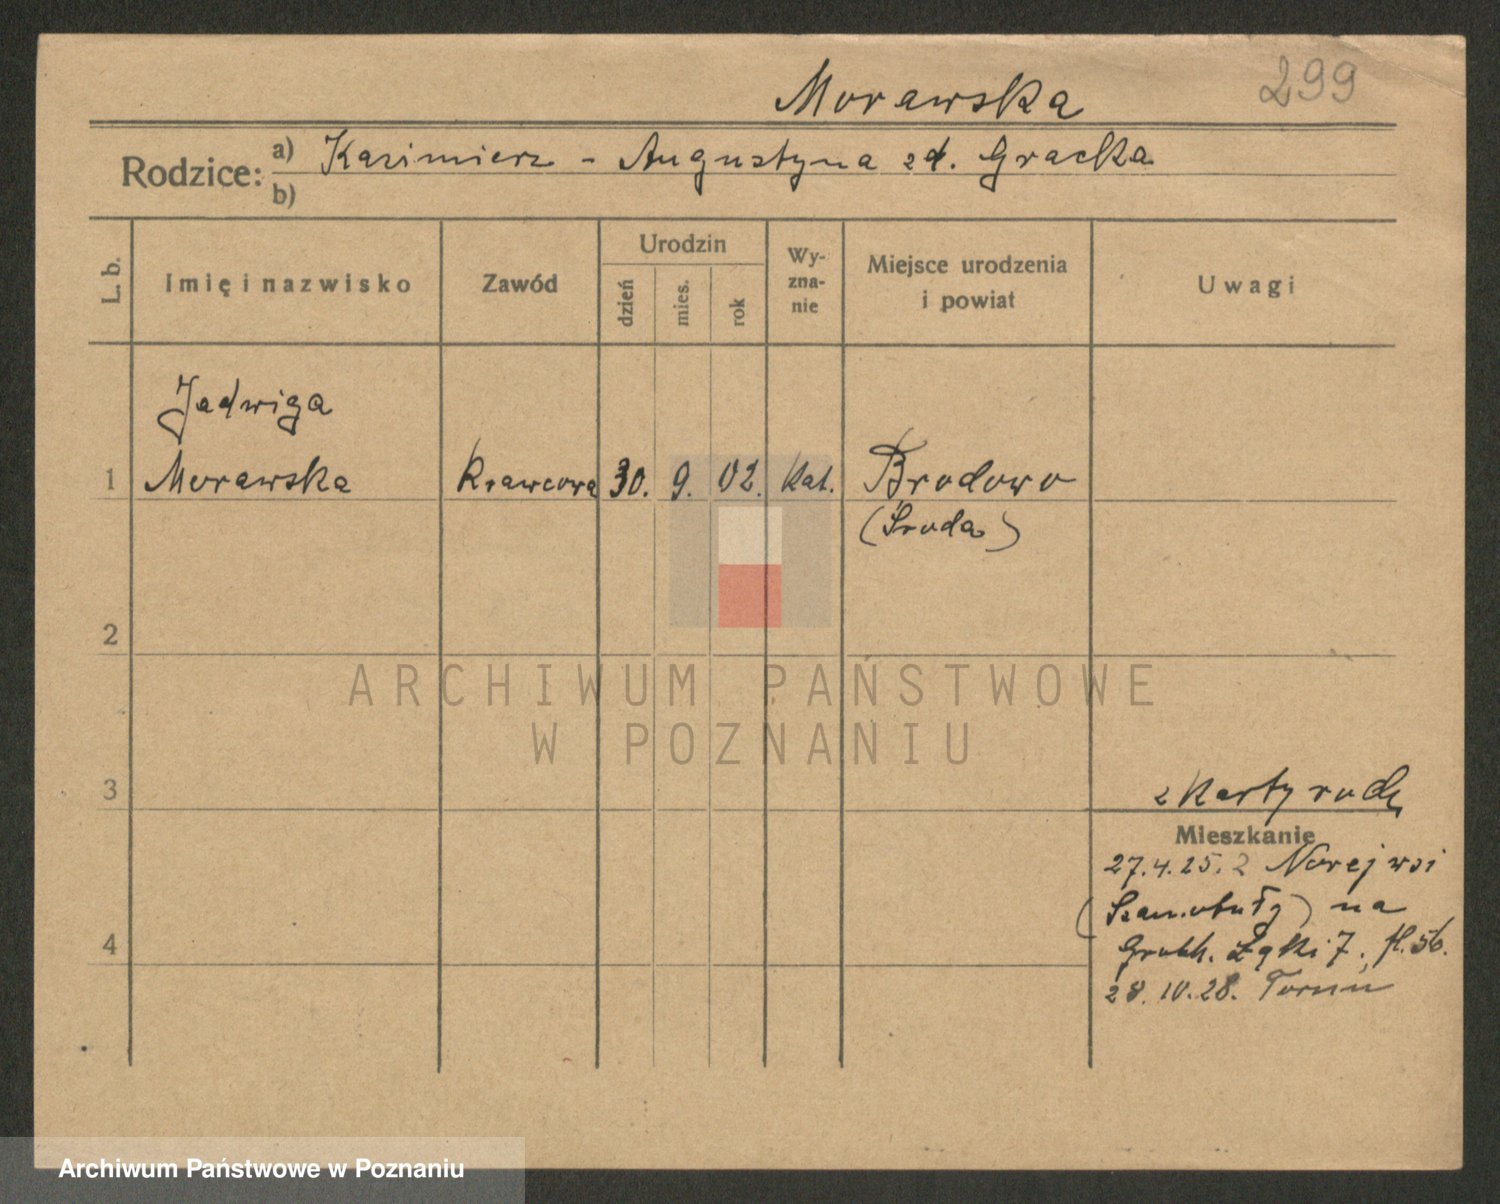 299
Morawska
Rodzice: a) Kazimierz - Augustyna zd. Gracka
b)
L. b.
Imię i nazwisko
Zawód
Urodzin
dzień
mies.
rok
Wy-
zna-
nie
Miejsce urodzenia
i powiat
Uwagi
Jadwiga
1 Morawska Krawcowa 30. 9. 02. Kat. Brodowo
(Środa)
2
ARCHIWUM PAŃSTWOWE
W POZNANIU
3
z Karty rodz.
Mieszkanie
27.4.25. z Nowej wsi
(Szamotuły) na
Grobh. Łąki 7.
4
28. IV. 28. Toruń
Archiwum Państwowe w Poznaniu